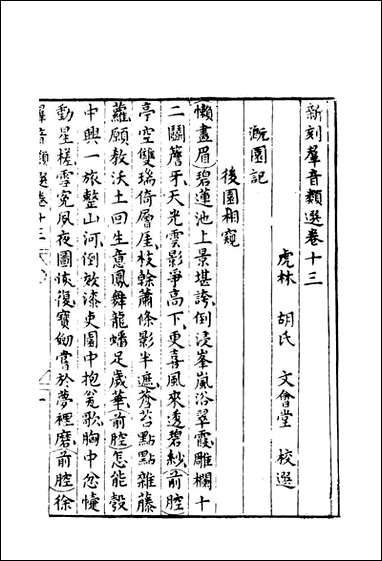 新刻羣音類選卷十三
虎林 胡氏 文會堂 校選
灌園記
後園相窺
懶畫眉碧蓮池上景堪誇倒浸峯嵐浴翠霞雕欄十
二闢簷牙天光雲影爭高下更喜風來透碧紗前腔
亭空雙瑞倚層崖枝幹蕭條影半遮莓苔點點雜藤
蘿願教沃土回生意鳳舞龍蟠足歲華前腔怎能彀
中興一旅整山河倒做漆吏園中抱瓮歌胸中忿懥
動星槎雪冤夙夜圖恢復寶劒嘗於夢裡磨前腔徐
羣音類選卷十三